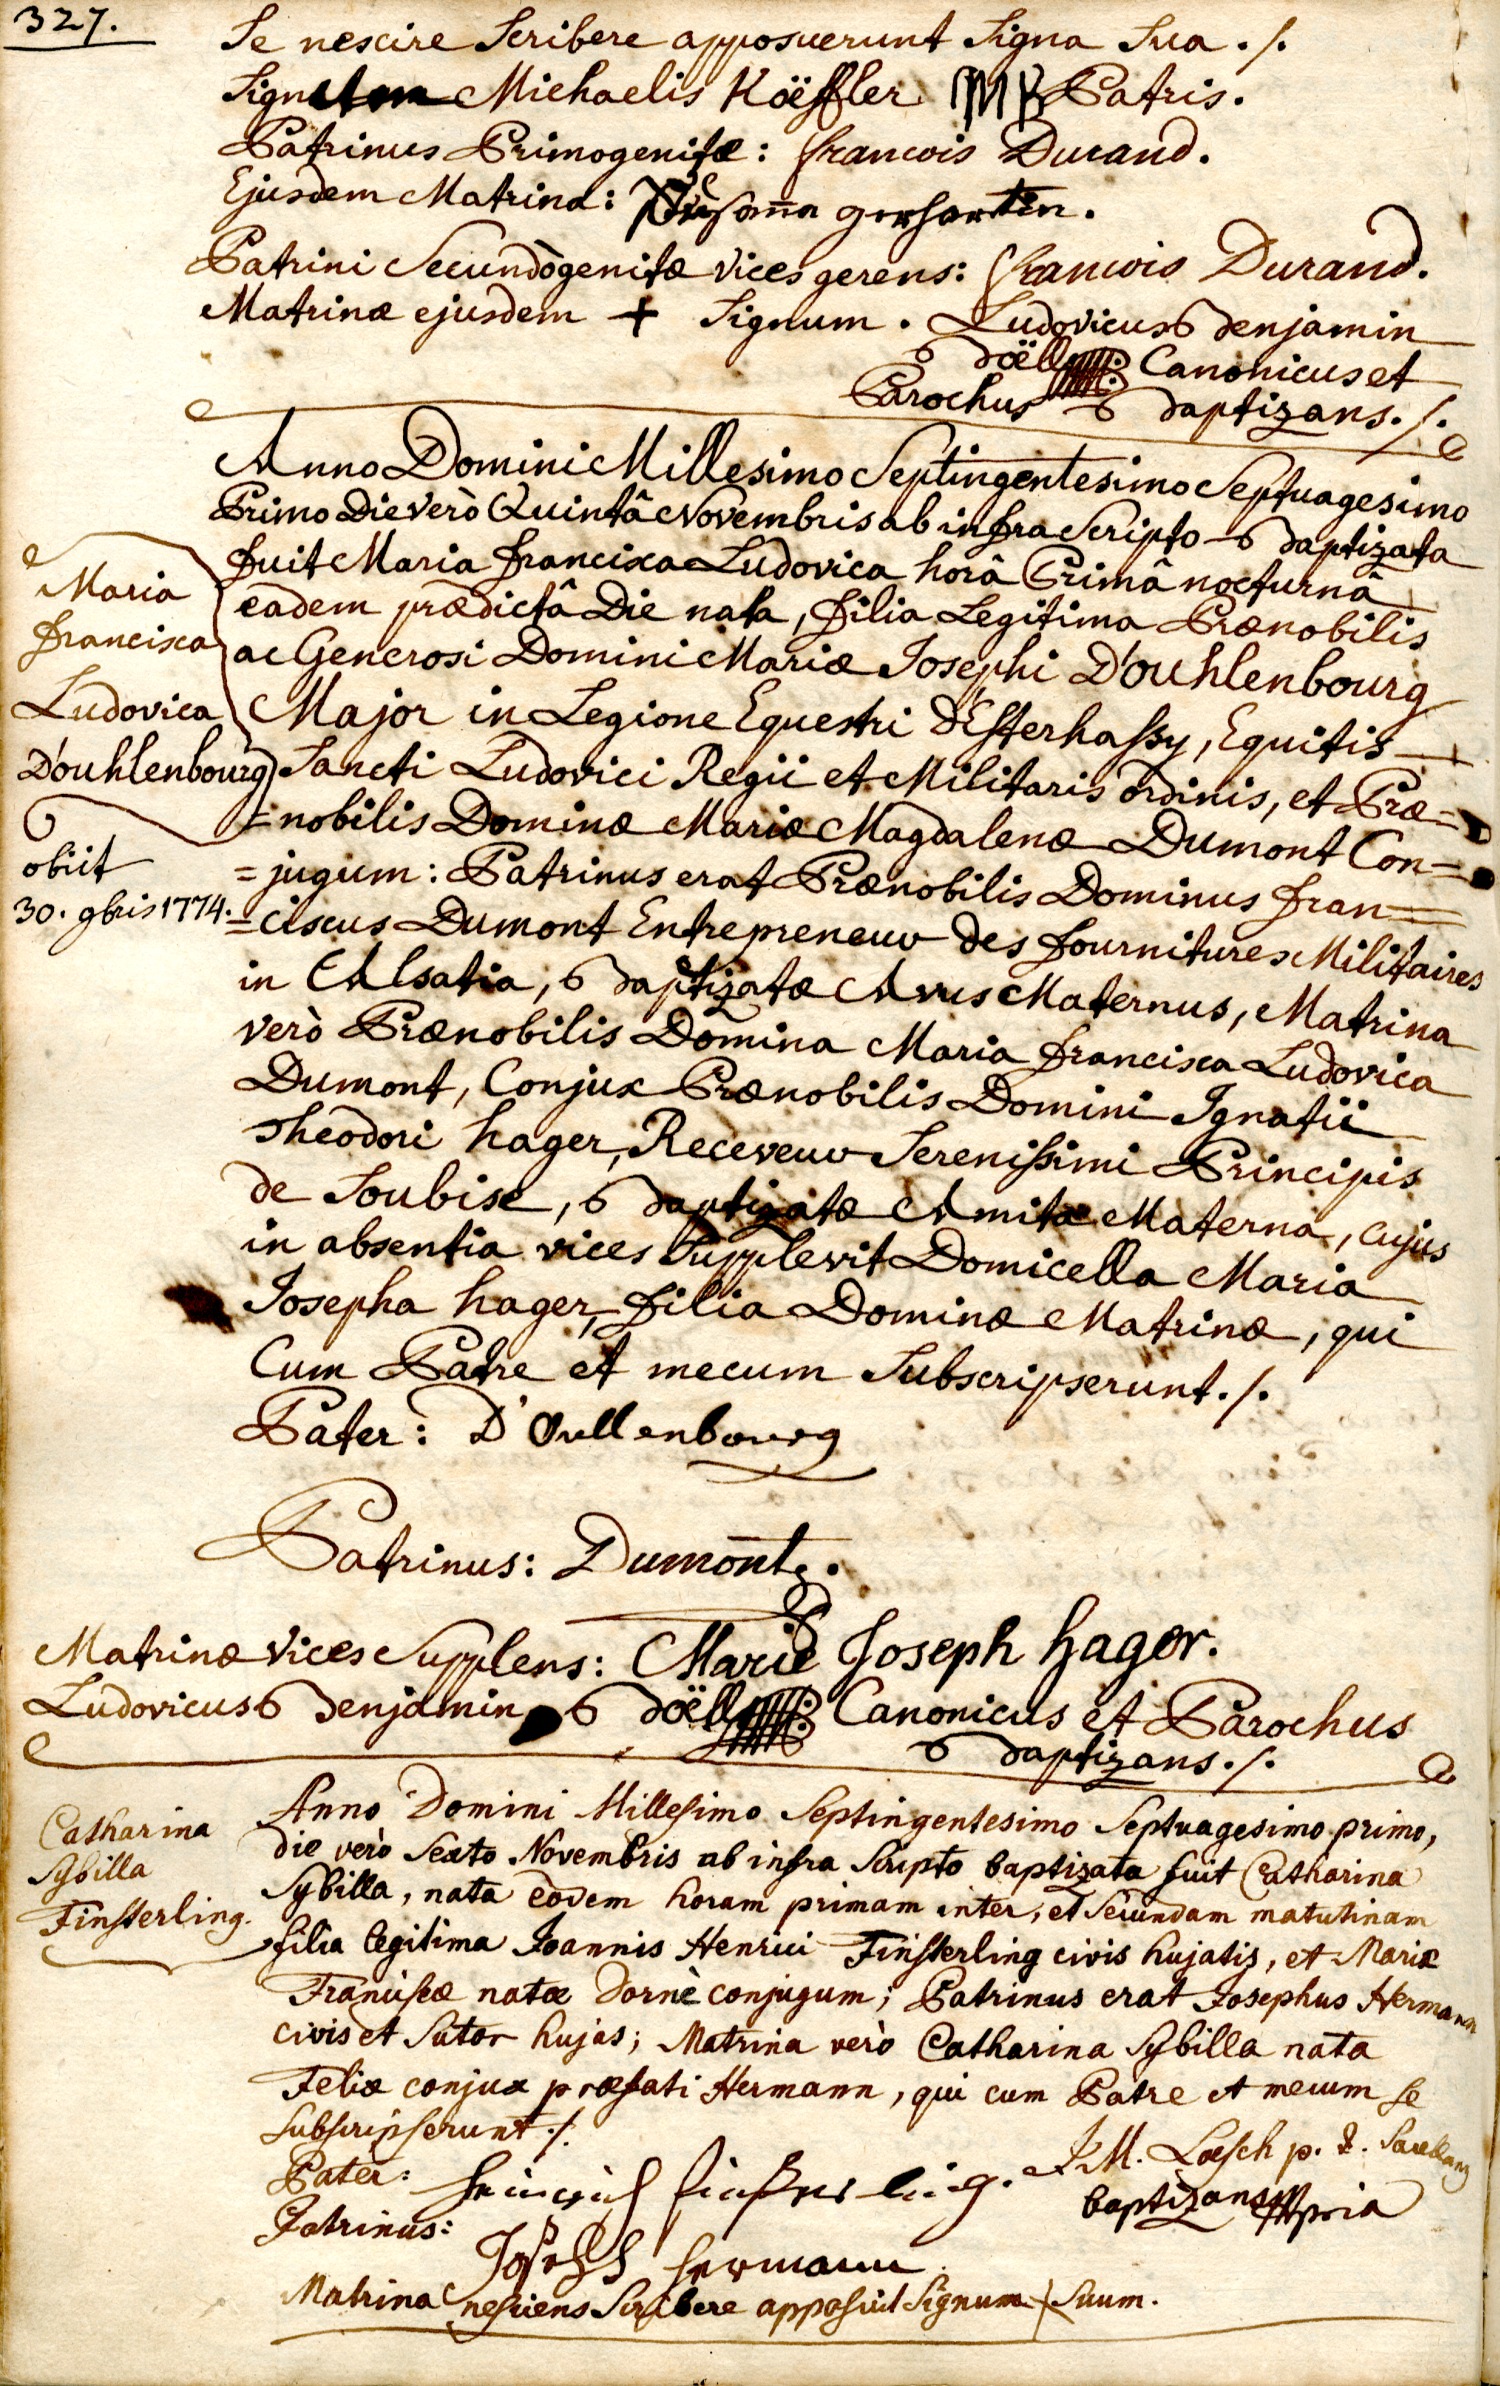 327.
Se nescire Scribere apposuerunt Signa Sua ./.
Signum Michaelis Höëffler MK Patris.
Patrinus Primogenitæ: francois Durand.
Ejusdem Matrina: Susanna gerhartin.
Patrini Secundògenitæ vices gerens: francois Durand.
Matrinæ ejusdem + Signum. Ludovicus Benjamin
Boëll Canonicus et
Parochus Baptizans ./.
Anno Domini Millesimo Septingentesimo Septuagesimo
Primo Die verò Quintâ Novembris ab infra Scripto Baptizata
fuit Maria francisca Ludovica horâ Primâ nocturnâ
eadem prædictâ Die nata, filia Legitima Prænobilis
ac Generosi Domini Mariæ Josephi D'ouhlenbourg
Major in Legione Equestri d'Esterhassy, Equitis
Sancti Ludovici Regii et Militaris ordinis, et Præ=
=nobilis Dominæ Mariæ Magdalenæ Dumont Con=
=jugum: Patrinus erat Prænobilis Dominus fran=
=ciscus Dumont Entrepreneur des fournitures Militaires
in Alsatia, Baptizatæ Avus Maternus, Matrina
verò Prænobilis Domina Maria francisca Ludovica
Dumont, Conjux Prænobilis Domini Ignatii
Theodori hager, Receveur Serenissimi Principis
de Soubise, Baptizatæ Amita Materna, cujus
in absentia vices Supplevit Domicella Maria
Josepha hager, filia Dominæ Matrinæ, qui
Cum Patre et mecum Subscripserunt ./.
Maria
francisca
Ludovica
D'ouhlenbourg
obiit
30. gbris 1774.
Pater: D'Oullenbourg
Patrinus: Dumont.
Matrinæ Vices Supplens: Marie Joseph hager.
Ludovicus Benjamin Boëll Canonicus et Parochus
Baptizans ./.
Catharina
Sybilla
Finsterling.
Anno Domini Millesimo Septingentesimo Septuagesimo primo,
die verò Sexto Novembris ab infra Scripto baptizata fuit Catharina
Sybilla, nata eodem horam primam inter, et Secundam matutinam
filia legitima Joannis Henrici Finsterling civis hujatis, et Mariæ
Franciscæ natæ Dornè conjugum; Patrinus erat Josephus Hermann
civis et Sutor hujas; Matrina verò Catharina Sybilla nata
Felix conjux præfati Hermann, qui cum Patre et mecum se
subscripserunt ./.
Pater: Heinrich finsterling. J.M. Loesch p. t. Sacellanus
baptizans mppria
Patrinus: Joseph hermann.
Matrina nesciens Scribere apposuit Signum + Suum.